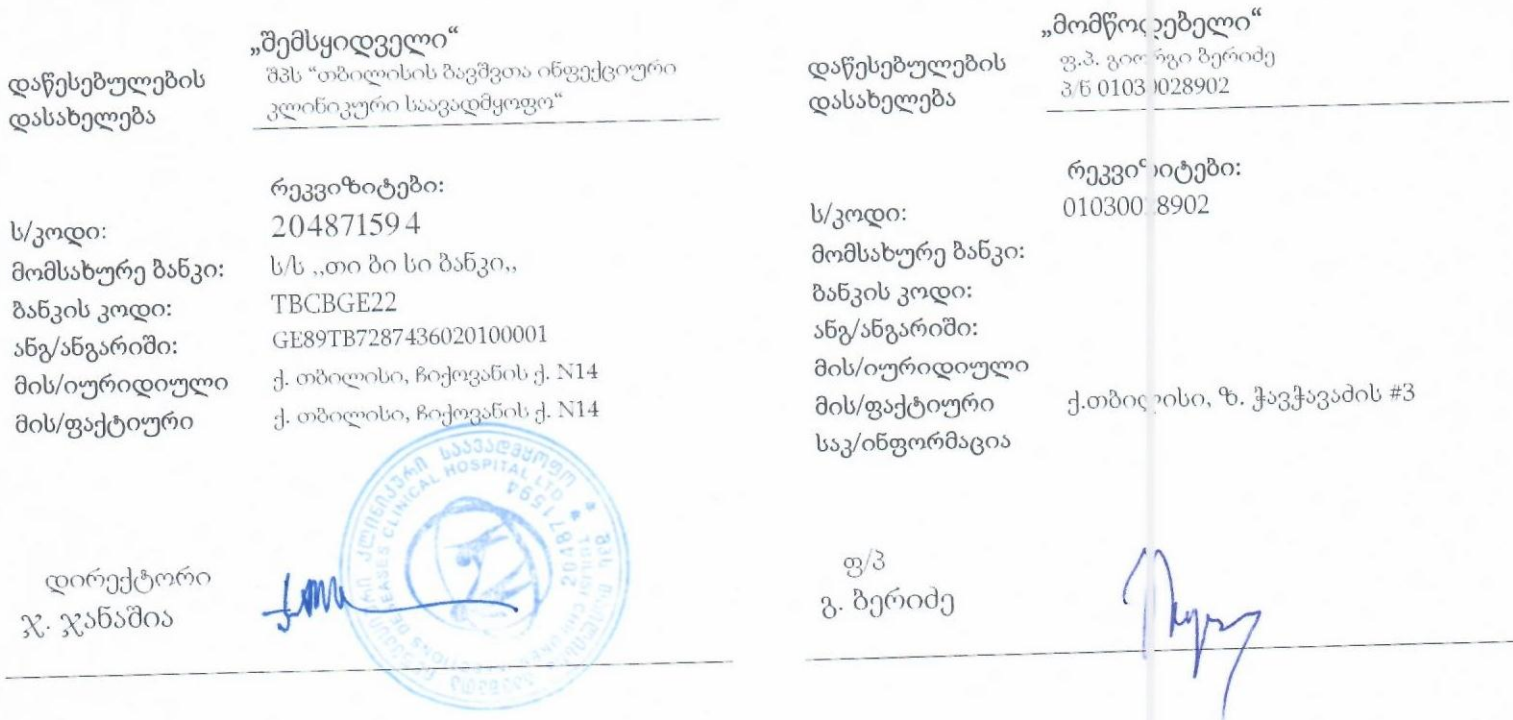 „შემსყიდველი“
დაწესებულების დასახელება
შპს “თბილისის ბავშვთა ინფექციური
კლინიკური საავადმყოფო“
რეკვიზიტები:
ს/კოდი: 204871594
მომსახურე ბანკი: ს/ს ,,თი ბი სი ბანკი,,
ბანკის კოდი: TBCBGE22
ანგ/ანგარიში: GE89TB7287436020100001
მის/იურიდიული ქ. თბილისი, ჩიქოვანის ქ. N14
მის/ფაქტიური ქ. თბილისი, ჩიქოვანის ქ. N14
დირექტორი
ჯ. ჯანაშია
კლინიკური საავადმყოფო
CLINICAL HOSPITAL LTD
204871594
„მომწოდებელი“
დაწესებულების დასახელება
ფ.პ. გიორგი ბერიძე
პ/ნ 01030028902
რეკვიზიტები:
ს/კოდი: 01030028902
მომსახურე ბანკი:
ბანკის კოდი:
ანგ/ანგარიში:
მის/იურიდიული
მის/ფაქტიური ქ.თბილისი, ზ. ჭავჭავაძის #3
საკ/ინფორმაცია
ფ/პ
გ. ბერიძე